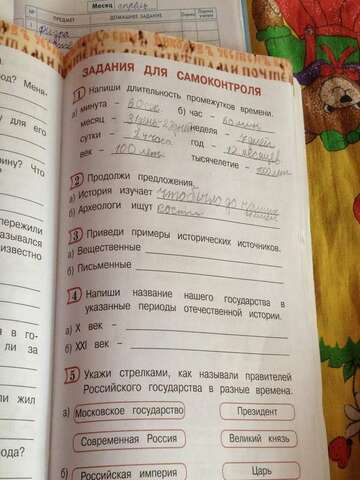 Месяц
ПРЕДМЕТ ДОМАШНЕЕ ЗАДАНИЕ
ЗАДАНИЯ ДЛЯ САМОКОНТРОЛЯ
1 Напиши длительность промежутков времени.
а) минута – 60 сек б) час – 60 мин
месяц – неделя – 7 дней
сутки – год – 12 месяцев
век – 100 лет тысячелетие –
2 Продолжи предложения.
а) История изучает что было до
б) Археологи ищут
3 Приведи примеры исторических источников.
а) Вещественные
б) Письменные
4 Напиши название нашего государства в
указанные периоды отечественной истории.
а) X век –
б) XXI век –
5 Укажи стрелками, как называли правителей
Российского государства в разные времена.
а) Московское государство Президент
Современная Россия Великий князь
б) Российская империя Царь
од? Меня-
у для его
рину? Что
пережили
азывался
известно
я в го-
ли за
или жил
рода?